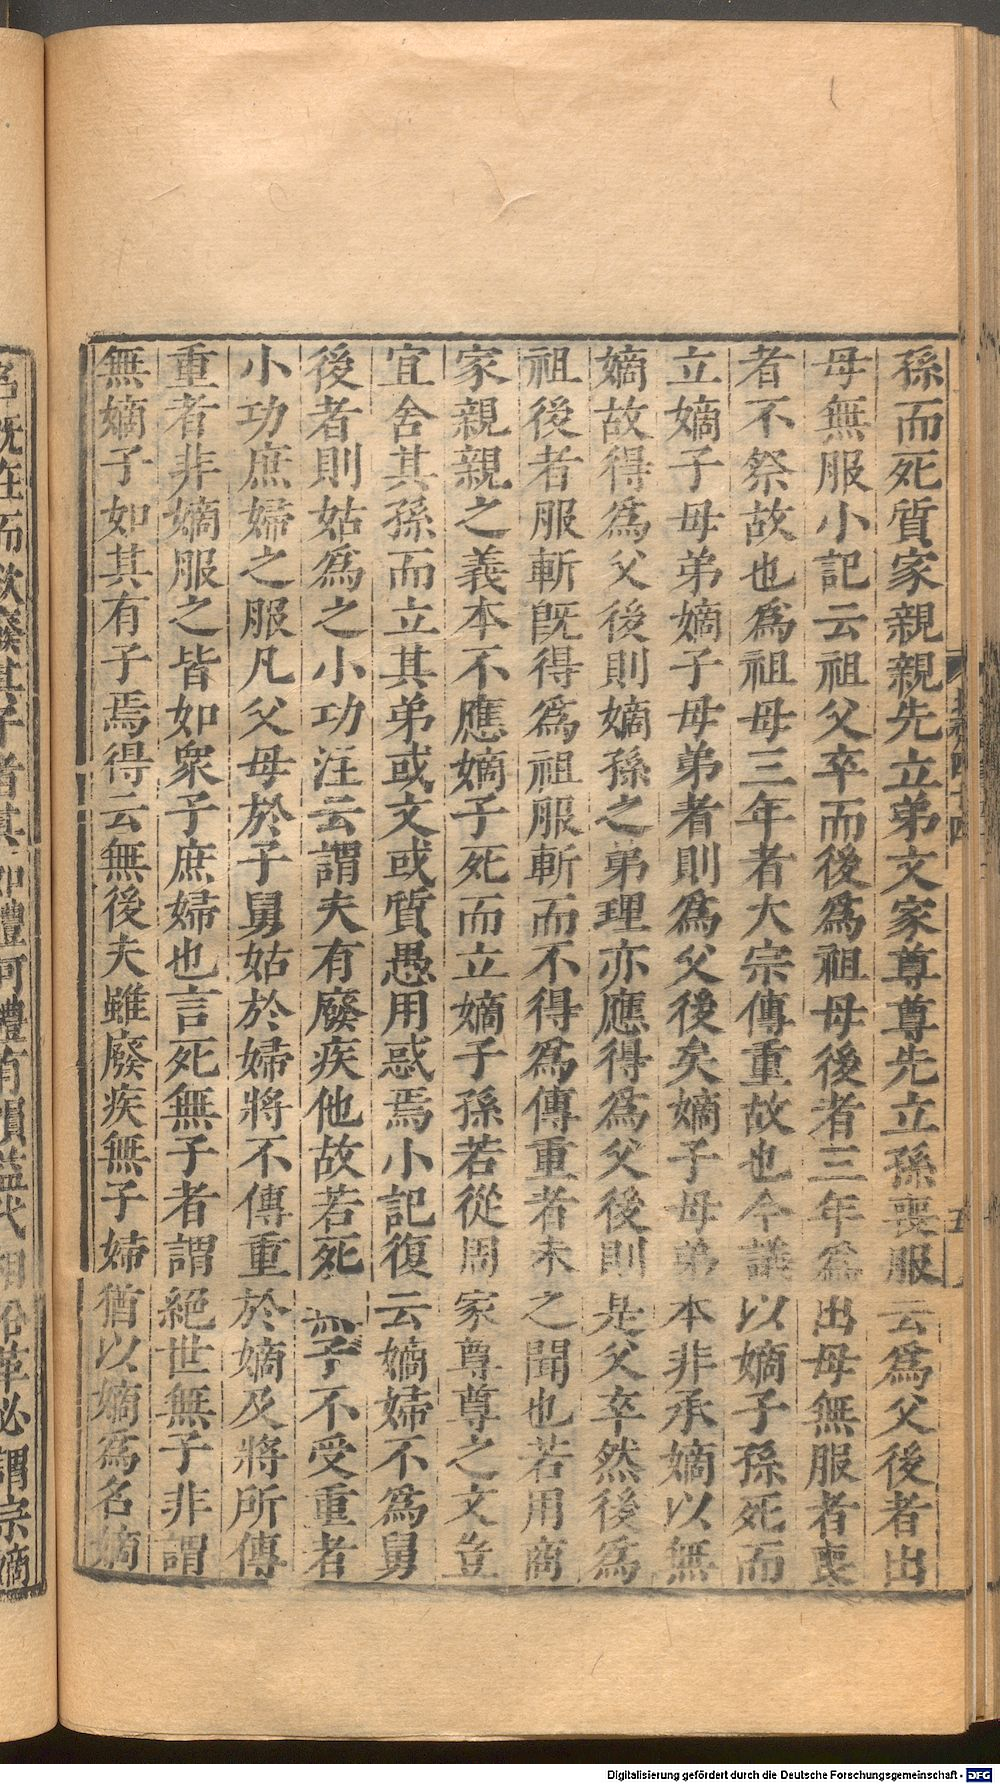 孫而死質家親親先立弟文家尊尊先立孫喪服云為父後者出
母無服小記云祖父卒而後為祖母後者三年為出母無服者喪
者不祭故也為祖母三年者大宗傳重故也今議以嫡子孫死而
立嫡子母弟嫡子母弟者則為父後矣嫡子母弟本非承嫡以無
嫡故得為父後則嫡孫之弟理亦應得為父後則是父卒然後為
祖後者服斬旣得為祖服斬而不得為傳重者未之聞也若用商
家親親之義本不應嫡子死而立嫡子孫若從周家尊尊之文豈
宜舍其孫而立其弟或文或質愚用惑焉小記復云嫡婦不為舅
後者則姑為之小功注云謂夫有廢疾他故若死無子不受重者
小功庶婦之服凡父母於子舅姑於婦將不傳重於嫡及將所傳
重者非嫡服之皆如衆子庶婦也言死無子者謂絕世無子非謂
無嫡子如其有子焉得云無後夫雖廢疾無子婦猶以嫡為名嫡
名旣在而欲廢其子者其如禮何禮有損益代相沿革必謂宗嫡
Digitalisierung gefördert durch die Deutsche Forschungsgemeinschaft - DFG